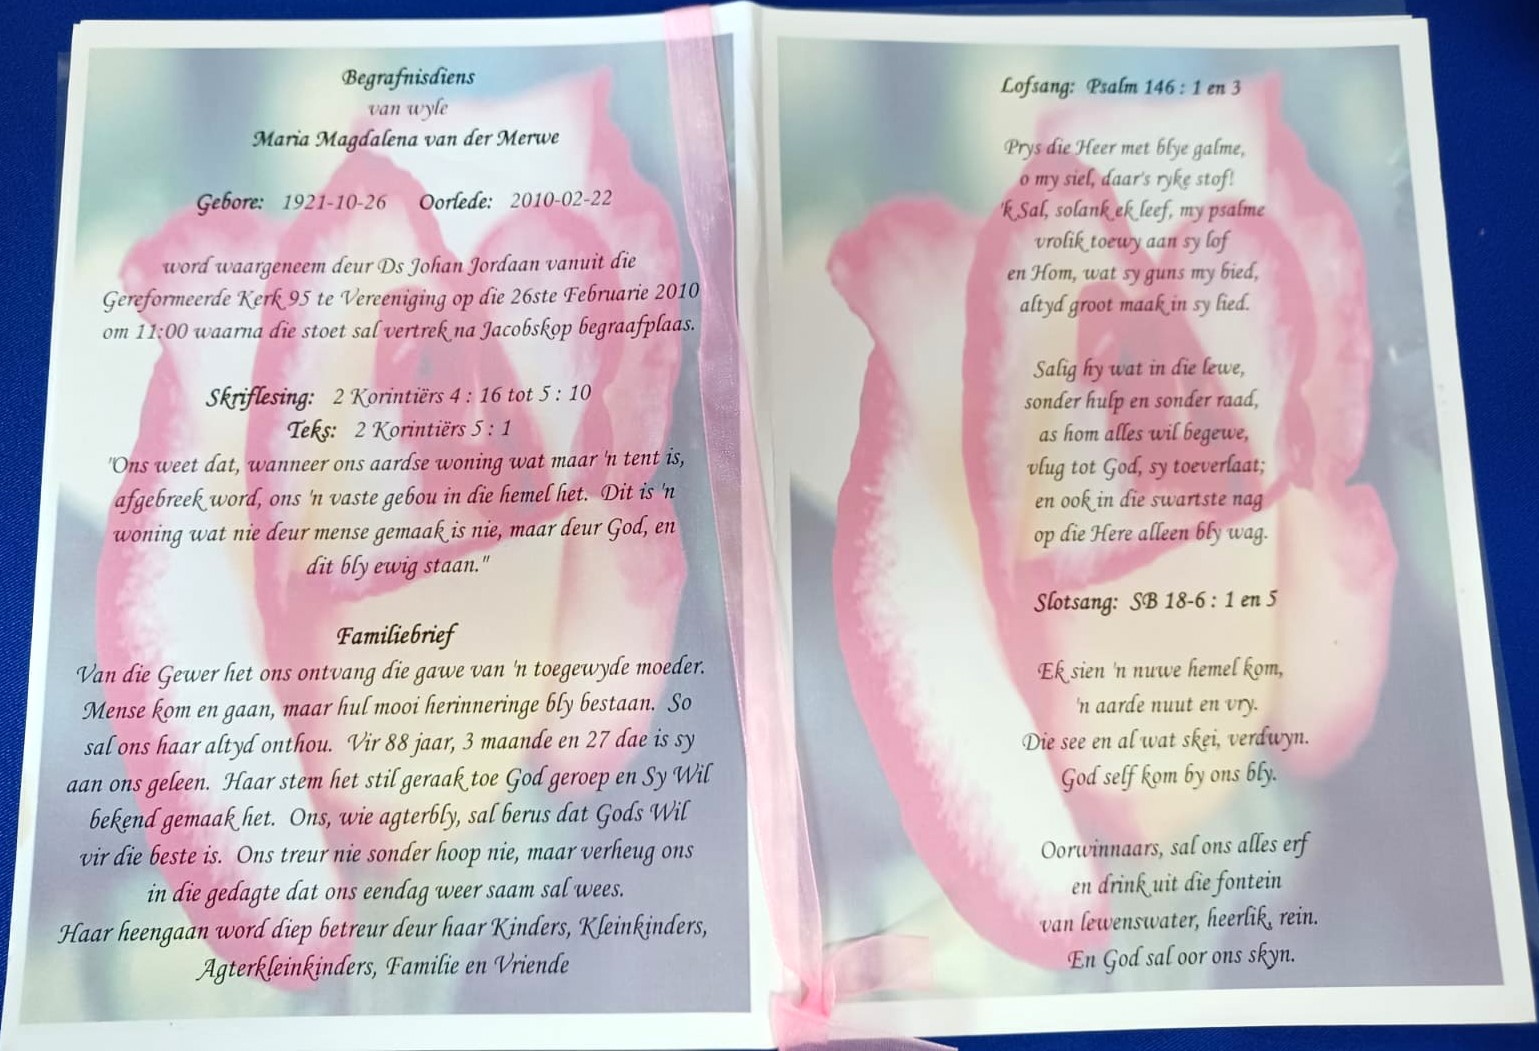 Begrafnisdiens
van wyle
Maria Magdalena van der Merwe
Gebore: 1921-10-26 Oorlede: 2010-02-22
word waargeneem deur Ds Johan Jordaan vanuit die
Gereformeerde Kerk 95 te Vereeniging op die 26ste Februarie 2010
om 11:00 waarna die stoet sal vertrek na Jacobskop begraafplaas.
Skriflesing: 2 Korintiërs 4 : 16 tot 5 : 10
Teks: 2 Korintiërs 5 : 1
"Ons weet dat, wanneer ons aardse woning wat maar 'n tent is,
afgebreek word, ons 'n vaste gebou in die hemel het. Dit is 'n
woning wat nie deur mense gemaak is nie, maar deur God, en
dit bly ewig staan."
Familiebrief
Van die Gewer het ons ontvang die gawe van 'n toegewyde moeder.
Mense kom en gaan, maar hul mooi herinneringe bly bestaan. So
sal ons haar altyd onthou. Vir 88 jaar, 3 maande en 27 dae is sy
aan ons geleen. Haar stem het stil geraak toe God geroep en Sy Wil
bekend gemaak het. Ons, wie agterbly, sal berus dat Gods Wil
vir die beste is. Ons treur nie sonder hoop nie, maar verheug ons
in die gedagte dat ons eendag weer saam sal wees.
Haar heengaan word diep betreur deur haar Kinders, Kleinkinders,
Agterkleinkinders, Familie en Vriende
Lofsang: Psalm 146 : 1 en 3
Prys die Heer met blye galme,
o my siel, daar's ryke stof!
'k Sal, solank ek leef, my psalme
vrolik toewy aan sy lof
en Hom, wat sy guns my bied,
altyd groot maak in sy lied.
Salig hy wat in die lewe,
sonder hulp en sonder raad,
as hom alles wil begewe,
vlug tot God, sy toeverlaat;
en ook in die swartste nag
op die Here alleen bly wag.
Slotsang: SB 18-6 : 1 en 5
Ek sien 'n nuwe hemel kom,
'n aarde nuut en vry.
Die see en al wat skei, verdwyn.
God self kom by ons bly.
Oorwinnaars, sal ons alles erf
en drink uit die fontein
van lewenswater, heerlik, rein.
En God sal oor ons skyn.